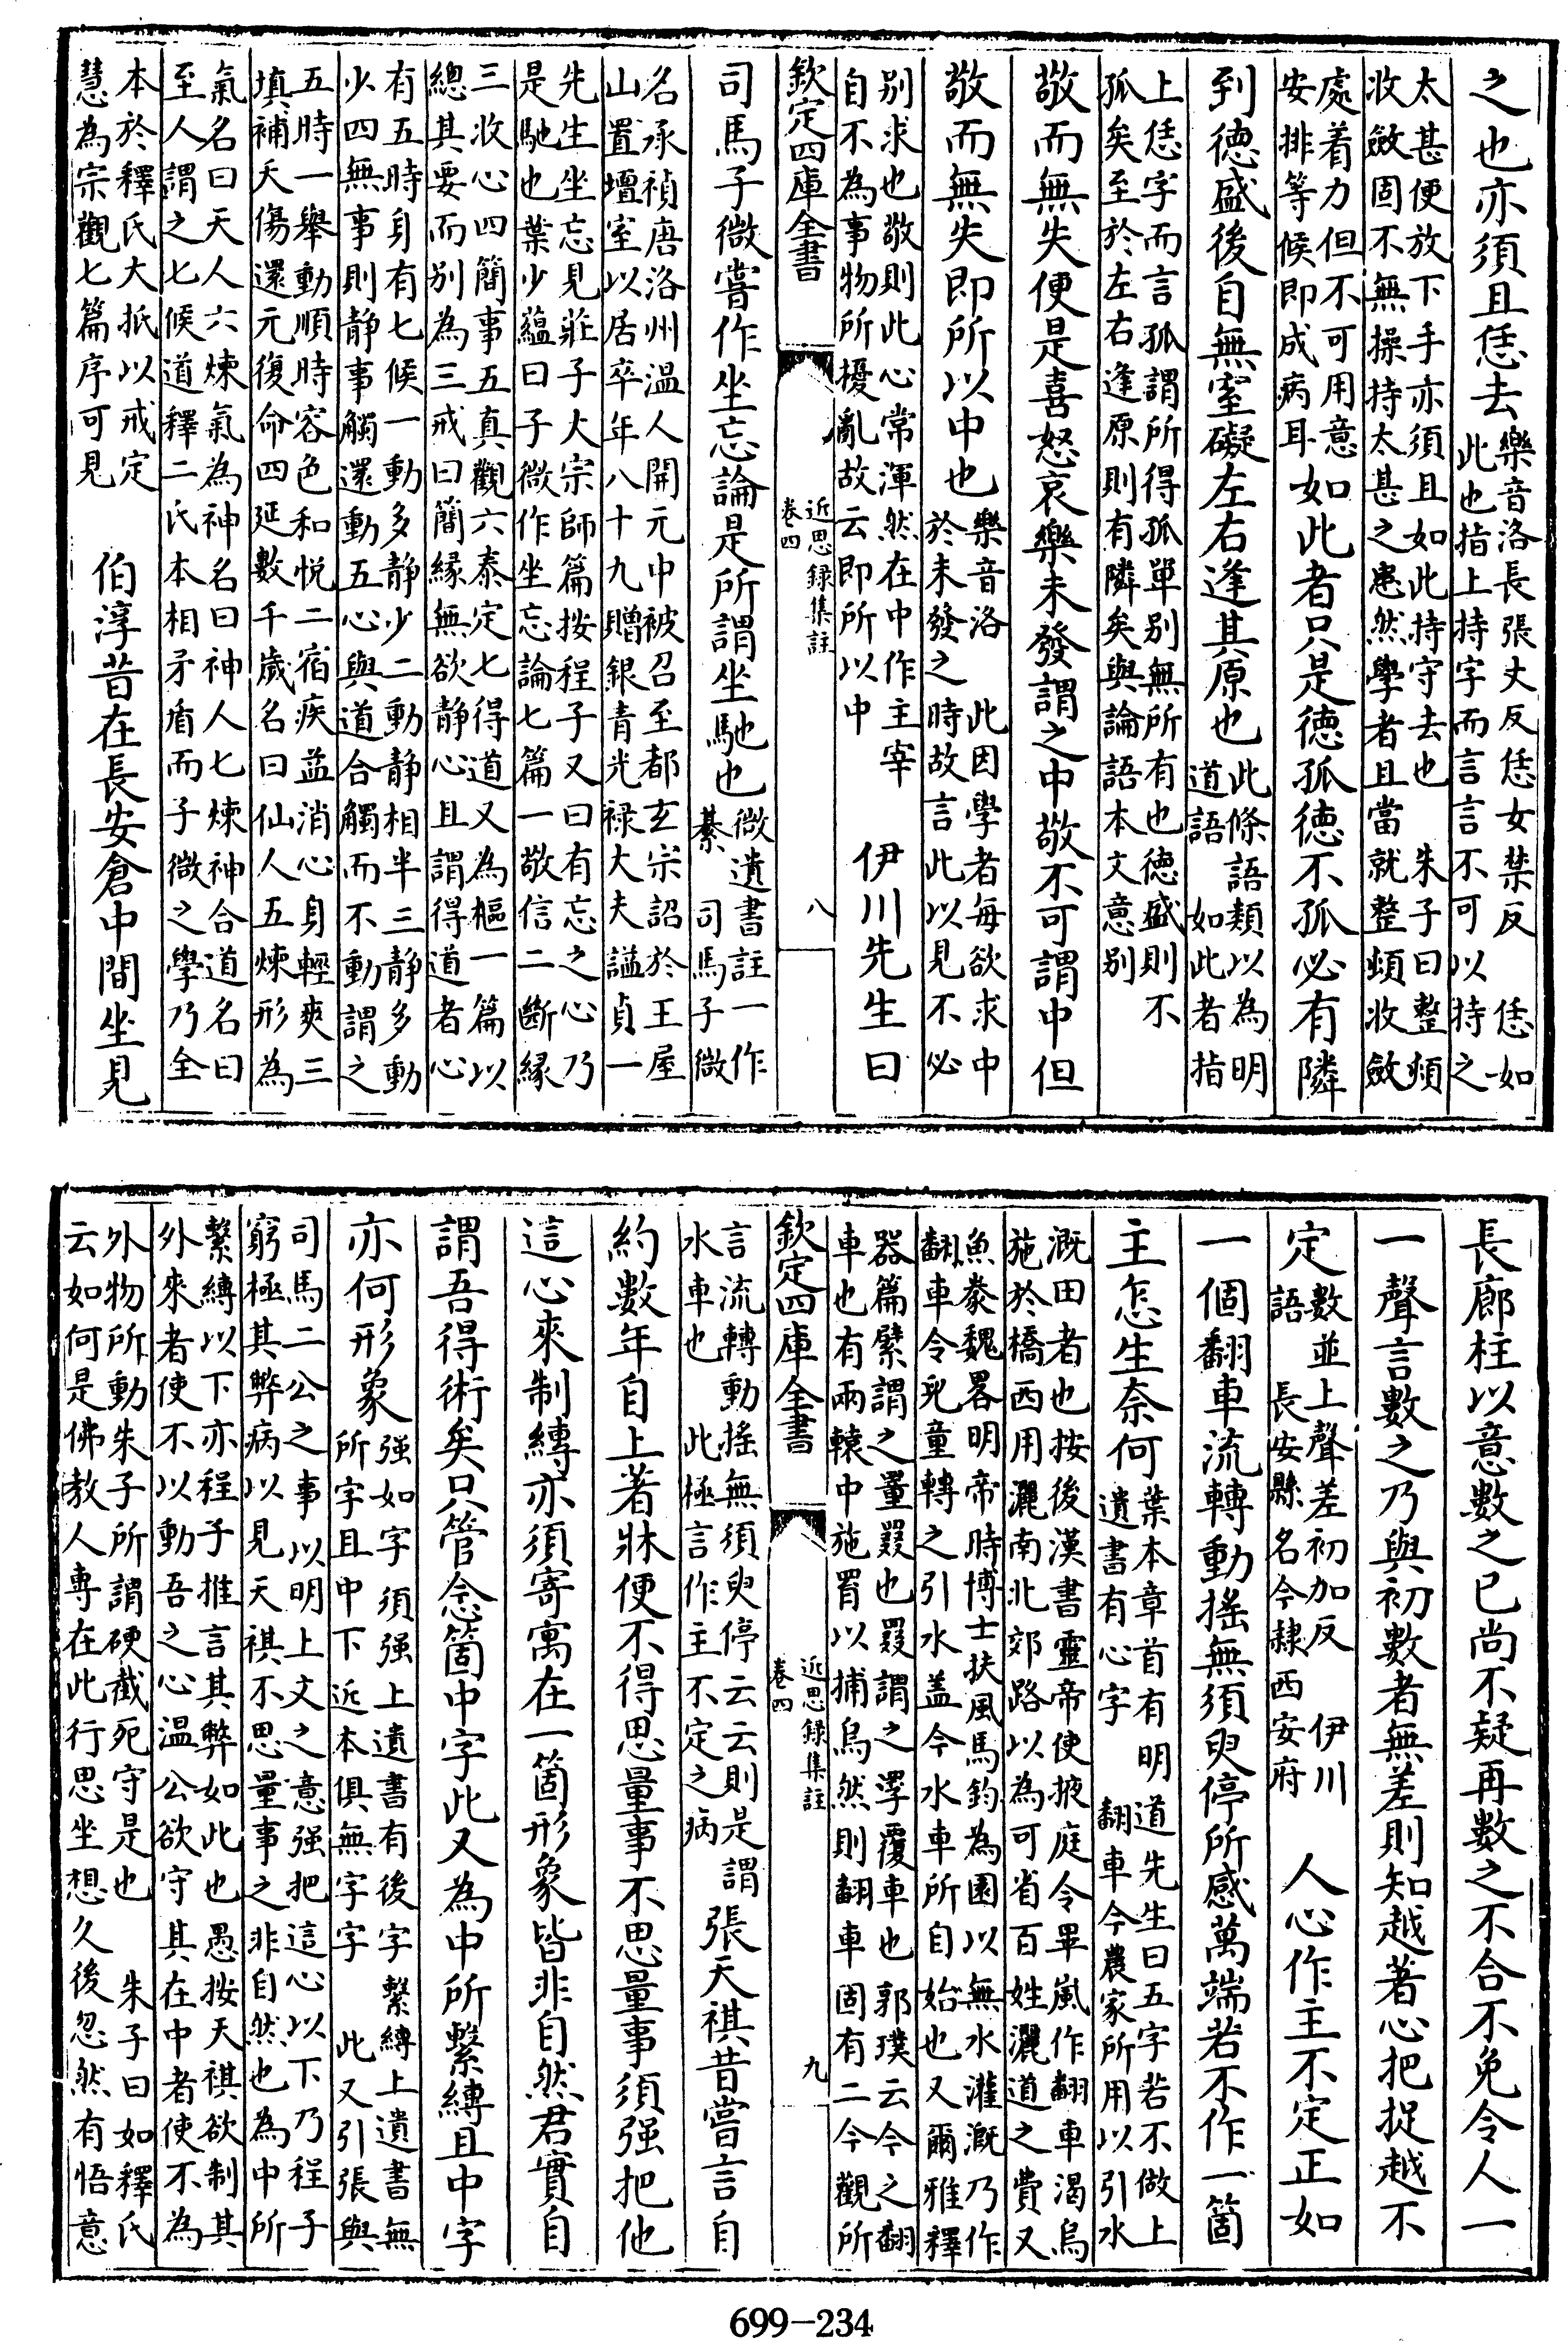 之也亦須且恁去樂音洛長張丈反恁女禁反　恁如
此也指上持字而言言不可以持之
太甚便放下手亦須且如此持守去也　朱子曰整頻
收斂固不無操持太甚之患然學者且當就整頻收斂
處着力但不可用意
安排等候即成病耳如此者只是德孤德不孤必有隣
到德盛後自無窒礙左右逢其原也此條語類以為明
道語　如此者指
上恁字而言孤謂所得孤單别無所有也德盛則不
孤矣至於左右逢原則有隣矣與論語本文意别
敬而無失便是喜怒哀樂未發謂之中敬不可謂中但
敬而無失即所以中也樂音洛　此因學者每欲求中
於未發之時故言此以見不必
别求也敬則此心常渾然在中作主宰
自不為事物所擾亂故云即所以中　伊川先生曰
欽定四庫全書
近思録集註
卷四
八
司馬子微嘗作坐忘論是所謂坐馳也微遺書註一作
綦　司馬子微
名承禎唐洛州温人開元中被召至都玄宗詔於王屋
山置壇室以居卒年八十九贈銀青光祿大夫謚貞一
先生坐忘見莊子大宗師篇按程子又曰有忘之心乃
是馳也葉少蘊曰子微作坐忘論七篇一敬信二斷緣
三收心四簡事五真觀六泰定七得道又為樞一篇以
總其要而别為三戒曰簡緣無欲静心且謂得道者心
有五時身有七候一動多静少二動静相半三静多動
少四無事則静事觸還動五心與道合觸而不動謂之
五時一舉動順時容色和悦二宿疾益消心身輕爽三
填補夭傷還元復命四延數千歲名曰仙人五煉形為
氣名曰天人六煉氣為神名曰神人七煉神合道名曰
至人謂之七候道釋二氏本相矛盾而子微之學乃全
本於釋氏大抵以戒定
慧為宗觀七篇序可見　伯淳昔在長安倉中間坐見
長廊柱以意數之已尚不疑再數之不合不免令人一
一聲言數之乃與初數者無差則知越著心把捉越不
定數並上聲差初加反　伊川
語　長安縣名今隸西安府　人心作主不定正如
一個翻車流轉動搖無須臾停所感萬端若不作一箇
主怎生奈何葉本章首有明道先生曰五字若不做上
遺書有心字　翻車今農家所用以引水
溉田者也按後漢書靈帝使掖庭令畢嵐作翻車渴烏
施於橋西用灑南北郊路以為可省百姓灑道之費又
魚豢魏畧明帝時博士扶風馬鈞為園以無水灌溉乃作
翻車令兒童轉之引水盖今水車所自始也又爾雅釋
器篇繴謂之罿罬也罬謂之罦覆車也郭璞云今之翻
車也有兩轅中施罥以捕鳥然則翻車固有二今觀所
欽定四庫全書
近思録集註
卷四
九
言流轉動搖無須臾停云云則是謂
水車也　此極言作主不定之病　張天祺昔嘗言自
約數年自上著牀便不得思量事不思量事須强把他
這心來制縛亦須寄寓在一箇形象皆非自然君實自
謂吾得術矣只管念箇中字此又為中所繫縛且中字
亦何形象强如字須强上遺書有後字繫縛上遺書無
所字且中下近本俱無字字　此又引張與
司馬二公之事以明上文之意强把這心以下乃程子
窮極其弊病以見天祺不思量事之非自然也為中所
繫縛以下亦程子推言其弊如此也愚按天祺欲制其
外來者使不以動吾之心温公欲守其在中者使不為
外物所動朱子所謂硬截死守是也　朱子曰如釋氏
云如何是佛教人專在此行思坐想久後忽然有悟意
699-234